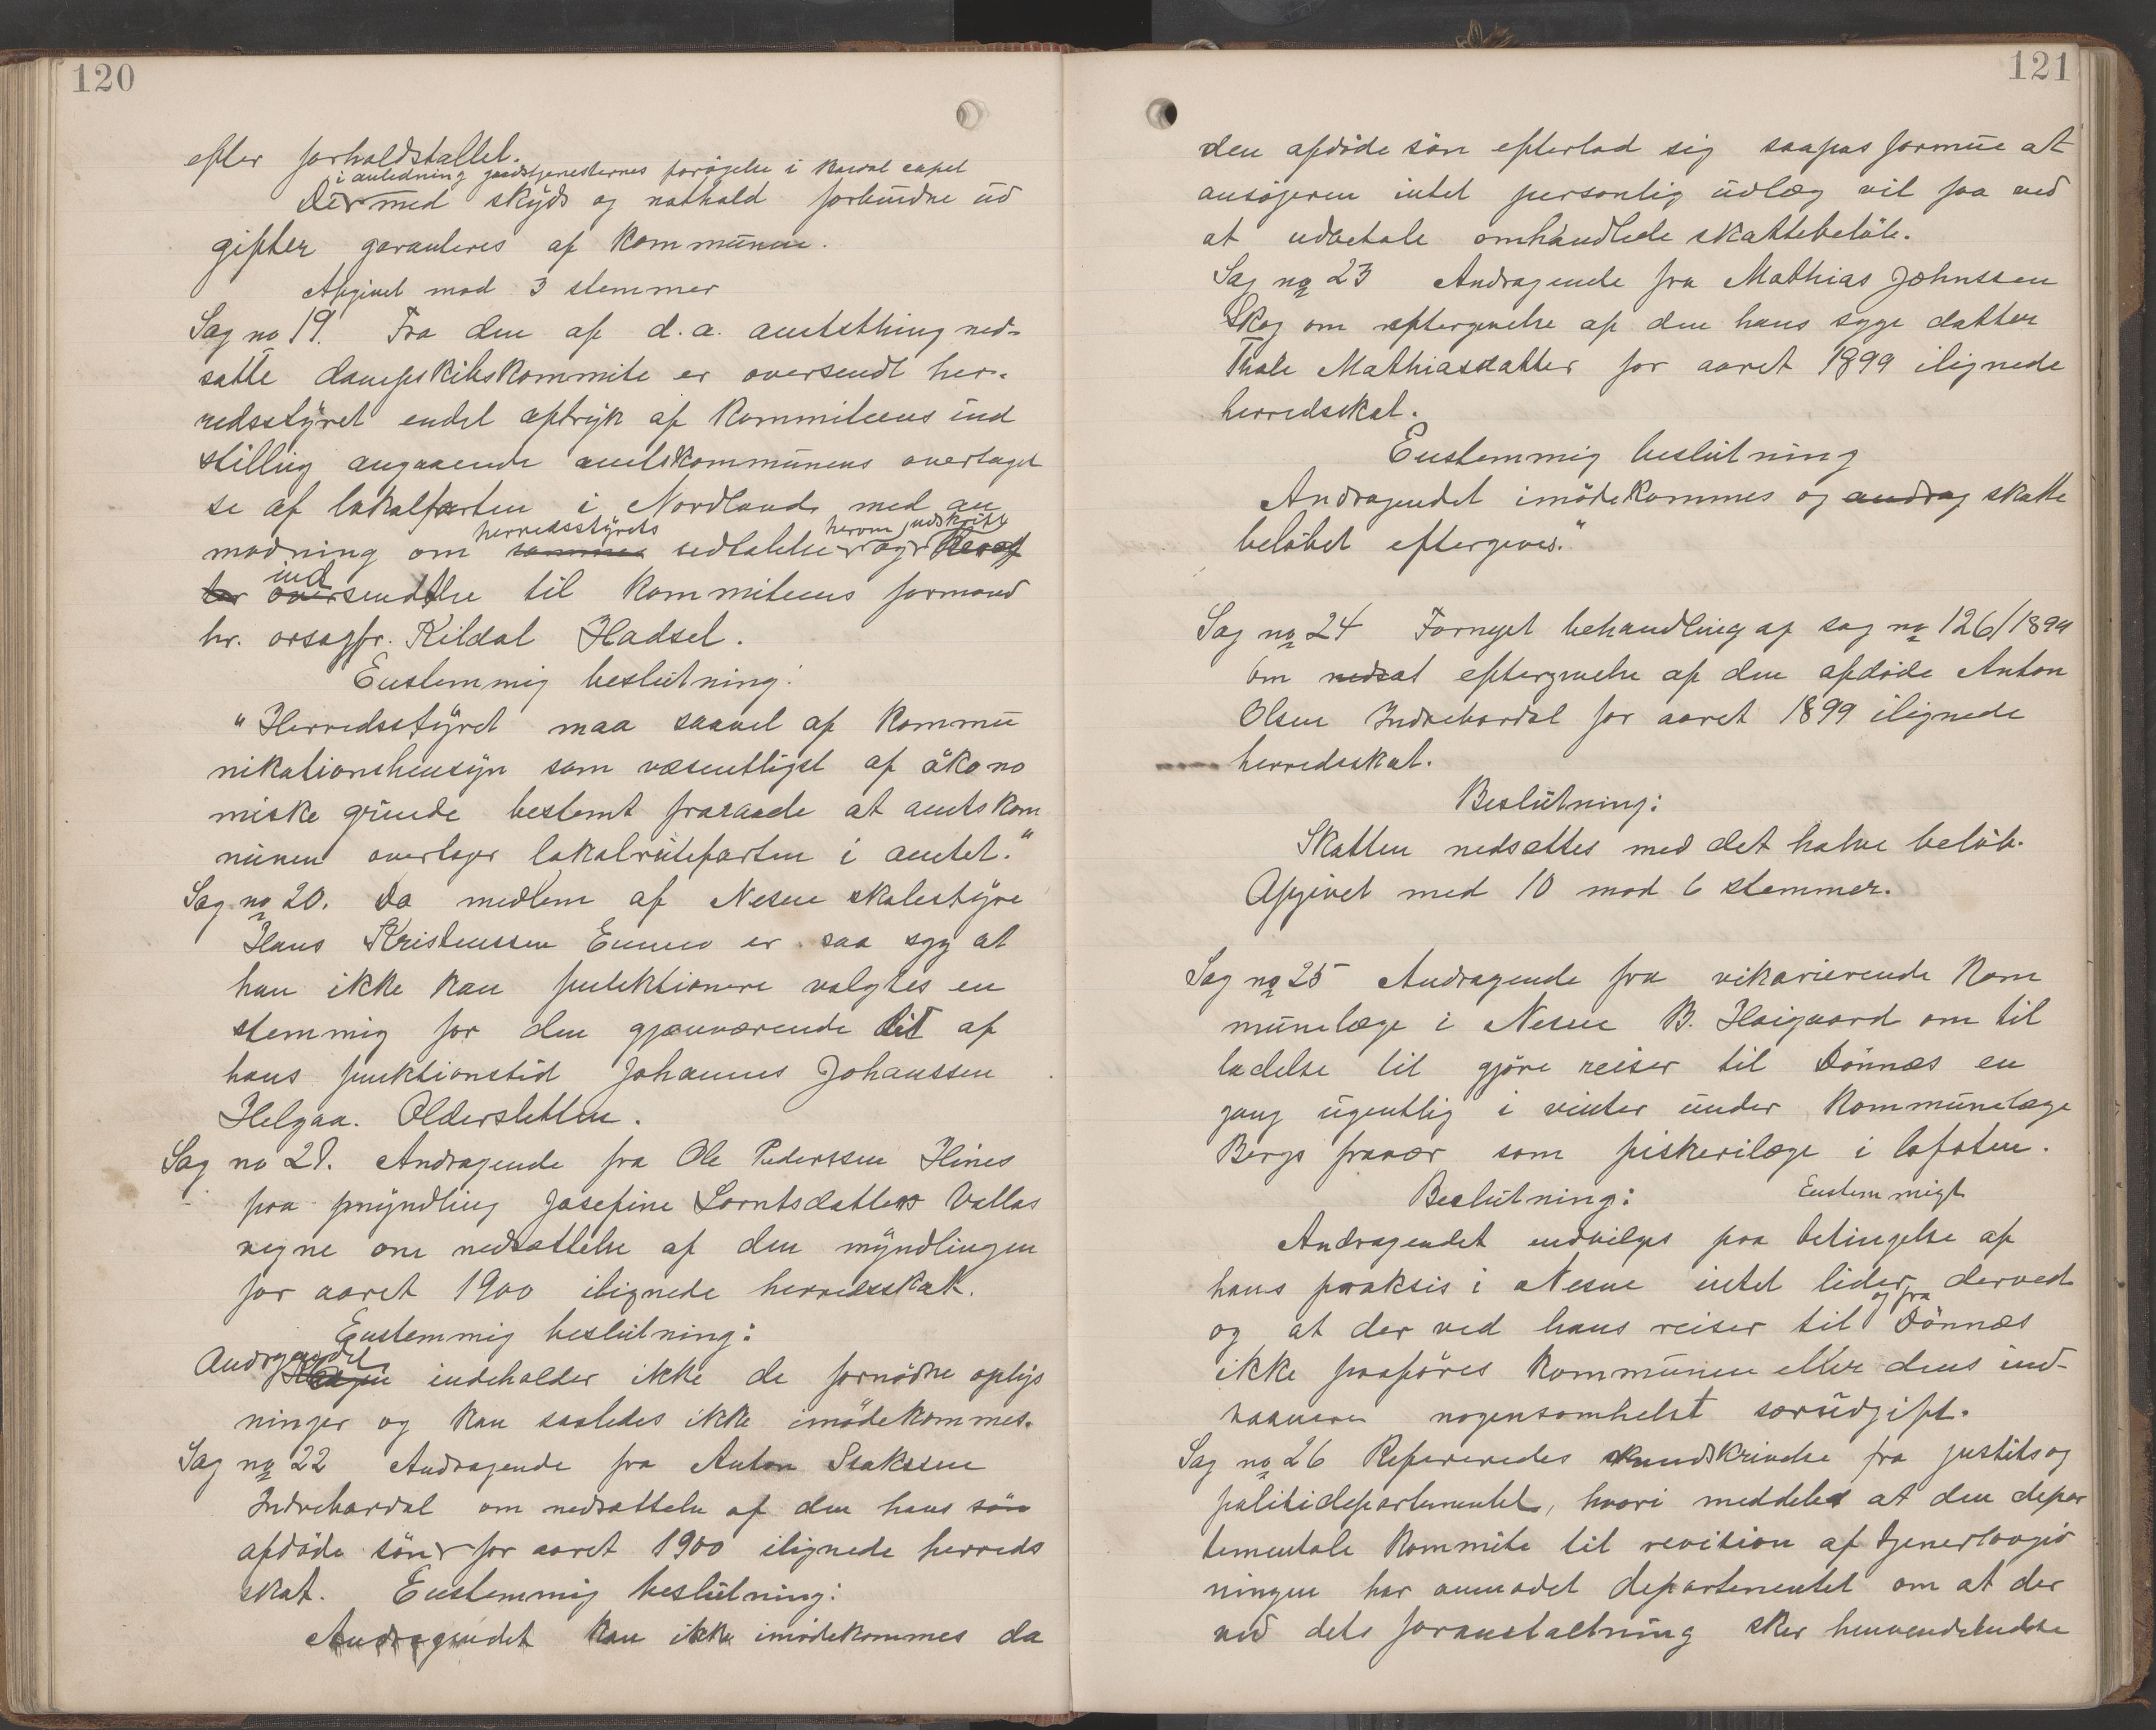 120
efter forholdstallet.
i anledning gudstjenesternes forøgelse i kapel
De med skÿds og nathold forbundne ud
gifter garanteres af kommunen.
Afgivet mod 3 stemmer
Sag no 19. Fra den af d.a. amtsthing ned-
satte dampskibskommite er oversendt her-
redsstÿret endel aftrÿk af kommiteens ind
stilling angaaende amtskommunens overtagel
se af lokalfarten i Nordland med an
herredsstÿrets herom indskrift
modning om sammes udtalelse og
ind
oversendelse til kommiteens formand
hr. orsagfr. Kildal Hadsel.
Enstemmig beslutning:
"Herredsstÿret maa saavel af kommu
nikationshensÿn som væsentligst af økono
miske grunde bestemt fraraade at amtskom
munen overtager lokalrutefarten i amtet."
Sag no 20. Da medlem af Nesne skolestÿre
Hans Kristenssen er saa syg at
han ikke kan funktionere valgtes en
stemmig for den gjenværende tid af
hans funktionstid Johannes Johanssen
Helgaa. Oldersletten.
Sag no 21. Andragende fra Ole Pederssen Hines
paa mÿndling Josefine Lorntsdatters Vallas
vegne om nedsættelse af den mÿndlingen
for aaret 1900 ilignede herredsskat.
Enstemmig beslutning:
Andragendet
indeholder ikke de fornødne oplÿs
ninger og kan saaledes ikke imødekommes.
Sag no 22 Andragende fra Anton Isakssen
Indrehardal om nedsættelse af den hans søn
afdøde søn for aaret 1900 ilignede herreds
skat. Enstemmig beslutning:
Andragendet kan ikke imødekommes da
121
den afdøde søn efterlod sig saapas formue at
ansøgeren intet personlig udlæg vil faa ved
at udbetale omhandlede skattebeløb.
Sag no 23 Andragende fra Mathias Johnssen
Skog om eftergivelse af den hans syge datter
Thale Mathiasdatter for aaret 1899 ilignede
herredsskat.
Enstemmig beslutning
Andragendet imødekommes og andrag skatte
beløbet eftergives."
Sag no 24 Fornyet behandling af sag no 126/1899
om nedsat eftergivelse af den afdøde Anton
Olsen Indrehardal for aaret 1899 ilignede
herredsskat.
Beslutning:
Skatten nedsættes med det halve beløb.
Afgivet med 10 mod 6 stemmer.
Sag no 25 Andragende fra vikarierende kom
munelæge i Nesne B. Høigaard om til
ladelse til gjøre reiser til Dønnæs en
gang ugentlig i vinter under kommunelæge
Bergs fravær som fiskerilæge i lofoten.
Beslutning: Enstemmigt
Andragendet indvilges paa betingelse af
hans praksis i Nesne intet lider derved
og fra
og at der ved hans reiser til Dønnæs
ikke paaføres kommunen eller dens ind-
vaanere nogensomhelst særudgift.
Sag no 26 Refereredes rundskrivelse fra justits og
politidepartementet, hvori meddeles at den depar
tementale kommite til revision af tjenerlovgiv
ningen har anmodet departementet om at der
ved dets foranstaltning sker